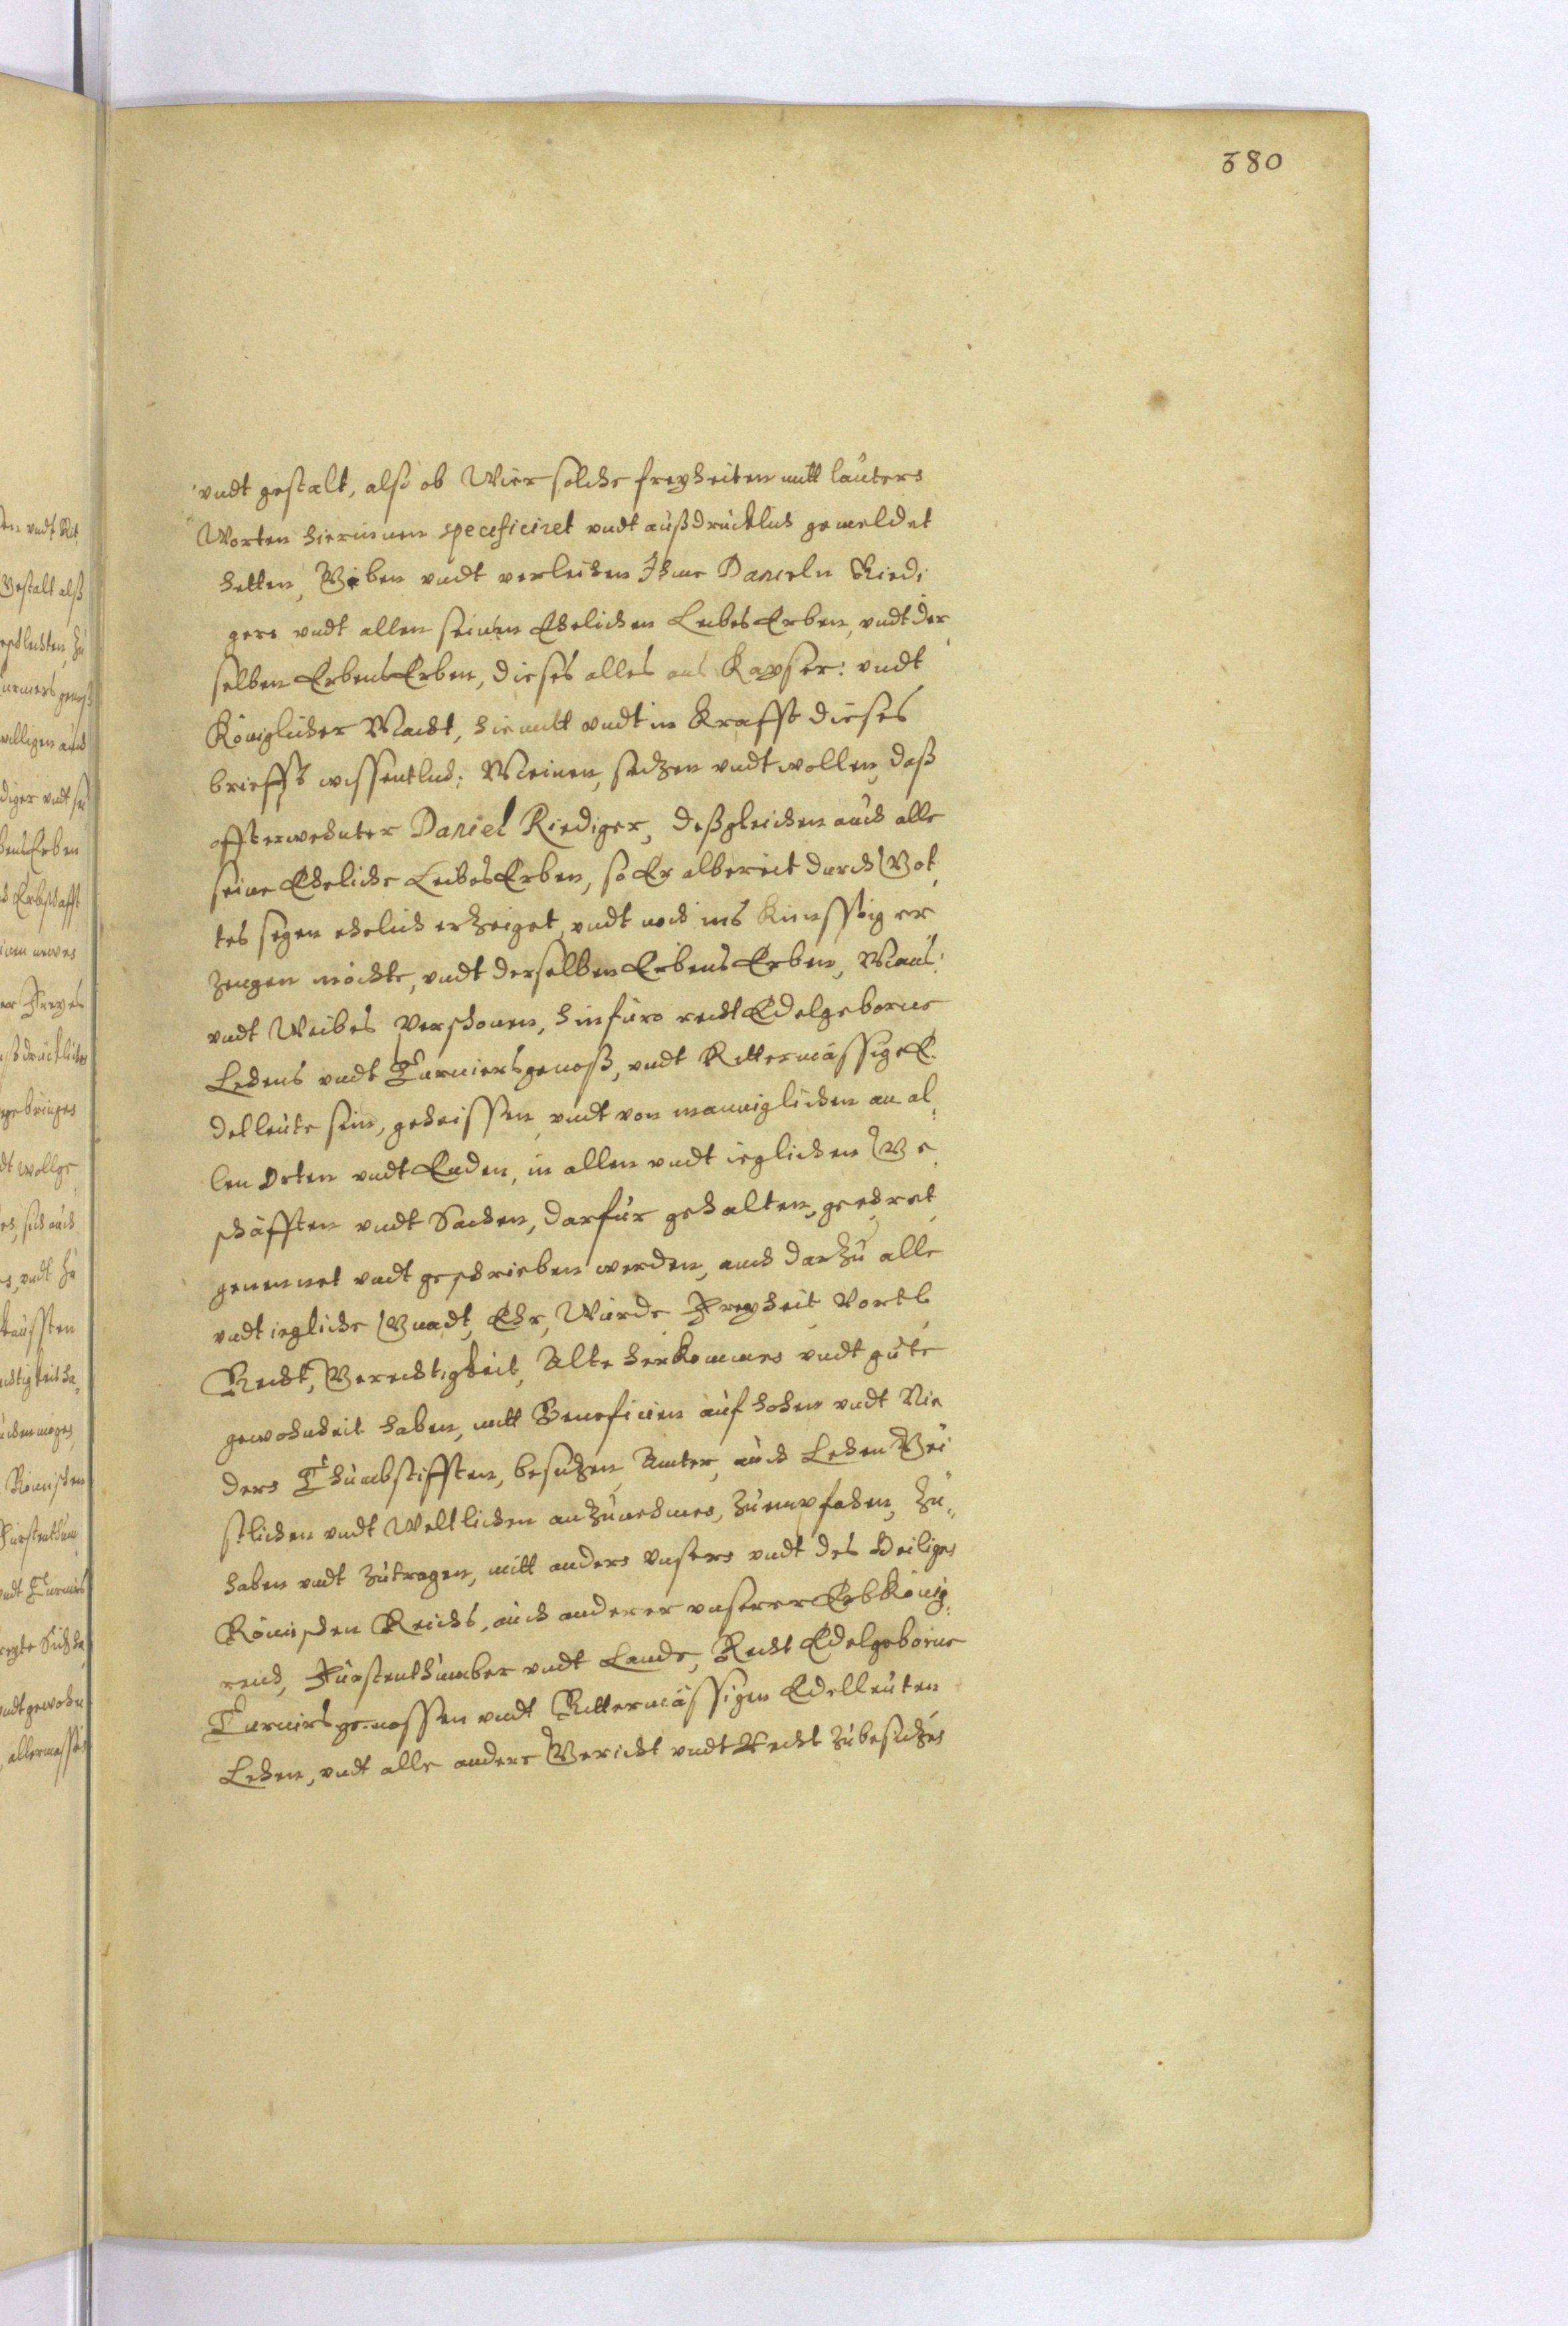 380
vndt gestalt, alß ob Wier solche freyheiten mitt lautern
Worten hierinnen specificiret vndt außdrücklich gemeldet
hetten, Geben vndt verleihen Ihme Danieln Riedi
gern vndt allen seinen Ehelichen LeibesErben, vndt der
selben ErbensErben, dieses alles aus Kayser: vndt
Königlicher Macht, hiemitt vndt in Krafft dieses
brieffs wissentlich: Meinen, setzen vndt wollen, daß
offterwehnter Daniel Riediger, deßgleichen auch alle
seine Eheliche LeibesErben, so Er albereit durch Got
tes segen ehelich erzeiget, vndt noch ins Künfftig er
zeugen möchte, vndt derselben ErbensErben, Mans:
vndt Weibes Persohnen, hinfüro recht Edelgeborne
Lehens vndt Turniersgenoß, vndt RittermässigeE.
delleüte sein, geheissen, vndt von manniglichen an al,
len Orten vndt Enden, in allen vndt ieglichen Ge
schäfften vndt Sachen, darfür gehalten, geehret,
genennet vndt geschrieben werden, auch darzu alle
vndt iegliche Gnadt, Ehr, Würde Freyheit, Vortl,
Recht, Gerechtigkeit, Alte herkommen vndt gute
gewohnheit haben, mitt Beneficien auf hohen vndt Nie
dern Thumbstifften, besitzen, Amter, auch Lehen Gei
stlichen vndt Weltlichen anzunehmen, zu empfahen, zu„
haben vndt zutragen, mitt andern vnsern vndt des Heiligen
Römischen Reichs, auch anderer vnserer ErbKönig,
reich, Fürstenthümber vndt Lande, Recht Edelgeborne
Turniersgenossen vndt Rittermässigen Edelleuten
Lehen, vndt alle andere Gericht vndt Recht zubesitzen